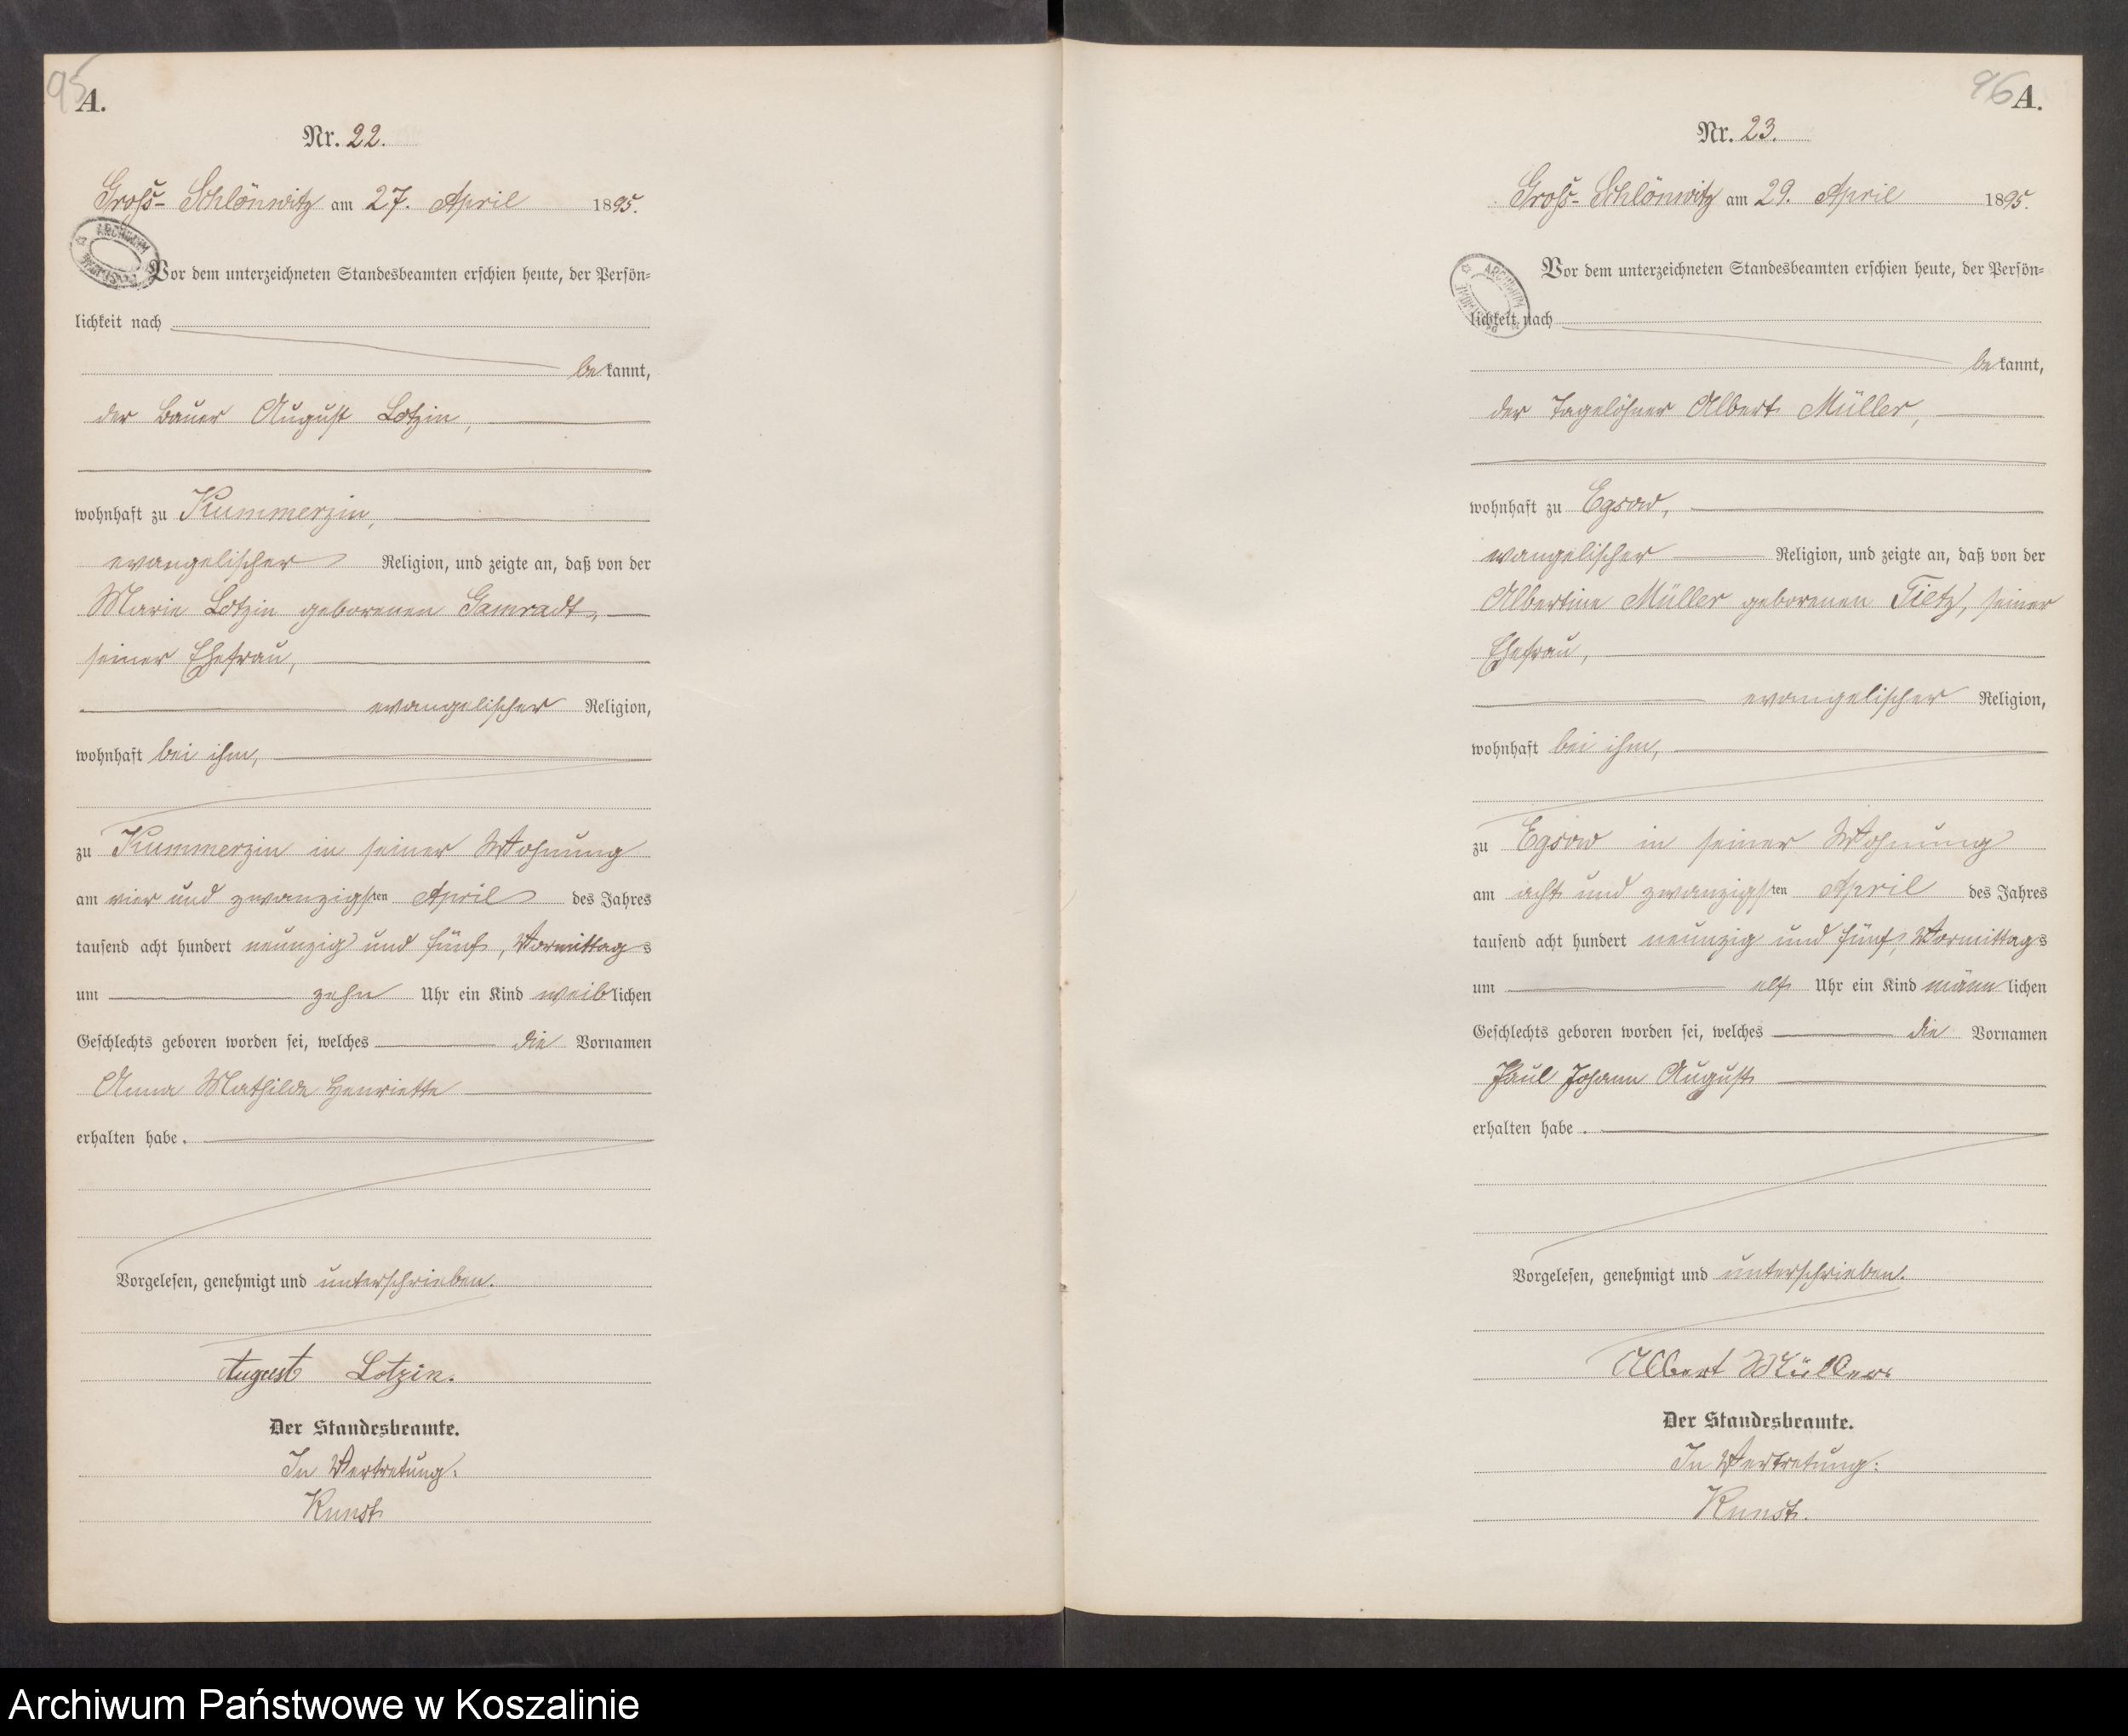 95
A.
Nr. 22.
Groß-Schlönwitz am 27. April 1895.
Vor dem unterzeichneten Standesbeamten erschien heute, der Persön=
lichkeit nach
bekannt,
der Bauer August Lotzin,
wohnhaft zu Kummerzin,
evangelischer Religion, und zeigte an, daß von der
Marie Lotzin geborenen Gamradt,
seiner Ehefrau,
evangelischer Religion,
wohnhaft bei ihm,
zu Kummerzin in seiner Wohnung
am vier und zwanzigsten April des Jahres
tausend acht hundert neunzig und fünf, Vormittags
um zehn Uhr ein Kind weiblichen
Geschlechts geboren worden sei, welches die Vornamen
Anna Mathilde Henriette
erhalten habe.
Vorgelesen, genehmigt und unterschrieben.
August Lotzin.
Der Standesbeamte.
In Vertretung:
Kunst
96
A.
Nr. 23.
Groß-Schlönwitz am 29. April 1895.
Vor dem unterzeichneten Standesbeamten erschien heute, der Persön=
lichkeit nach
bekannt,
der Tagelöhner Albert Müller,
wohnhaft zu Egsow,
evangelischer Religion, und zeigte an, daß von der
Albertine Müller geborenen Tietz, seiner
Ehefrau,
evangelischer Religion,
wohnhaft bei ihm,
zu Egsow in seiner Wohnung
am acht und zwanzigsten April des Jahres
tausend acht hundert neunzig und fünf, Vormittags
um elf Uhr ein Kind männlichen
Geschlechts geboren worden sei, welches die Vornamen
Paul Johann August
erhalten habe.
Vorgelesen, genehmigt und unterschrieben.
Albert Müller
Der Standesbeamte.
In Vertretung:
Kunst.
Archiwum Państwowe w Koszalinie